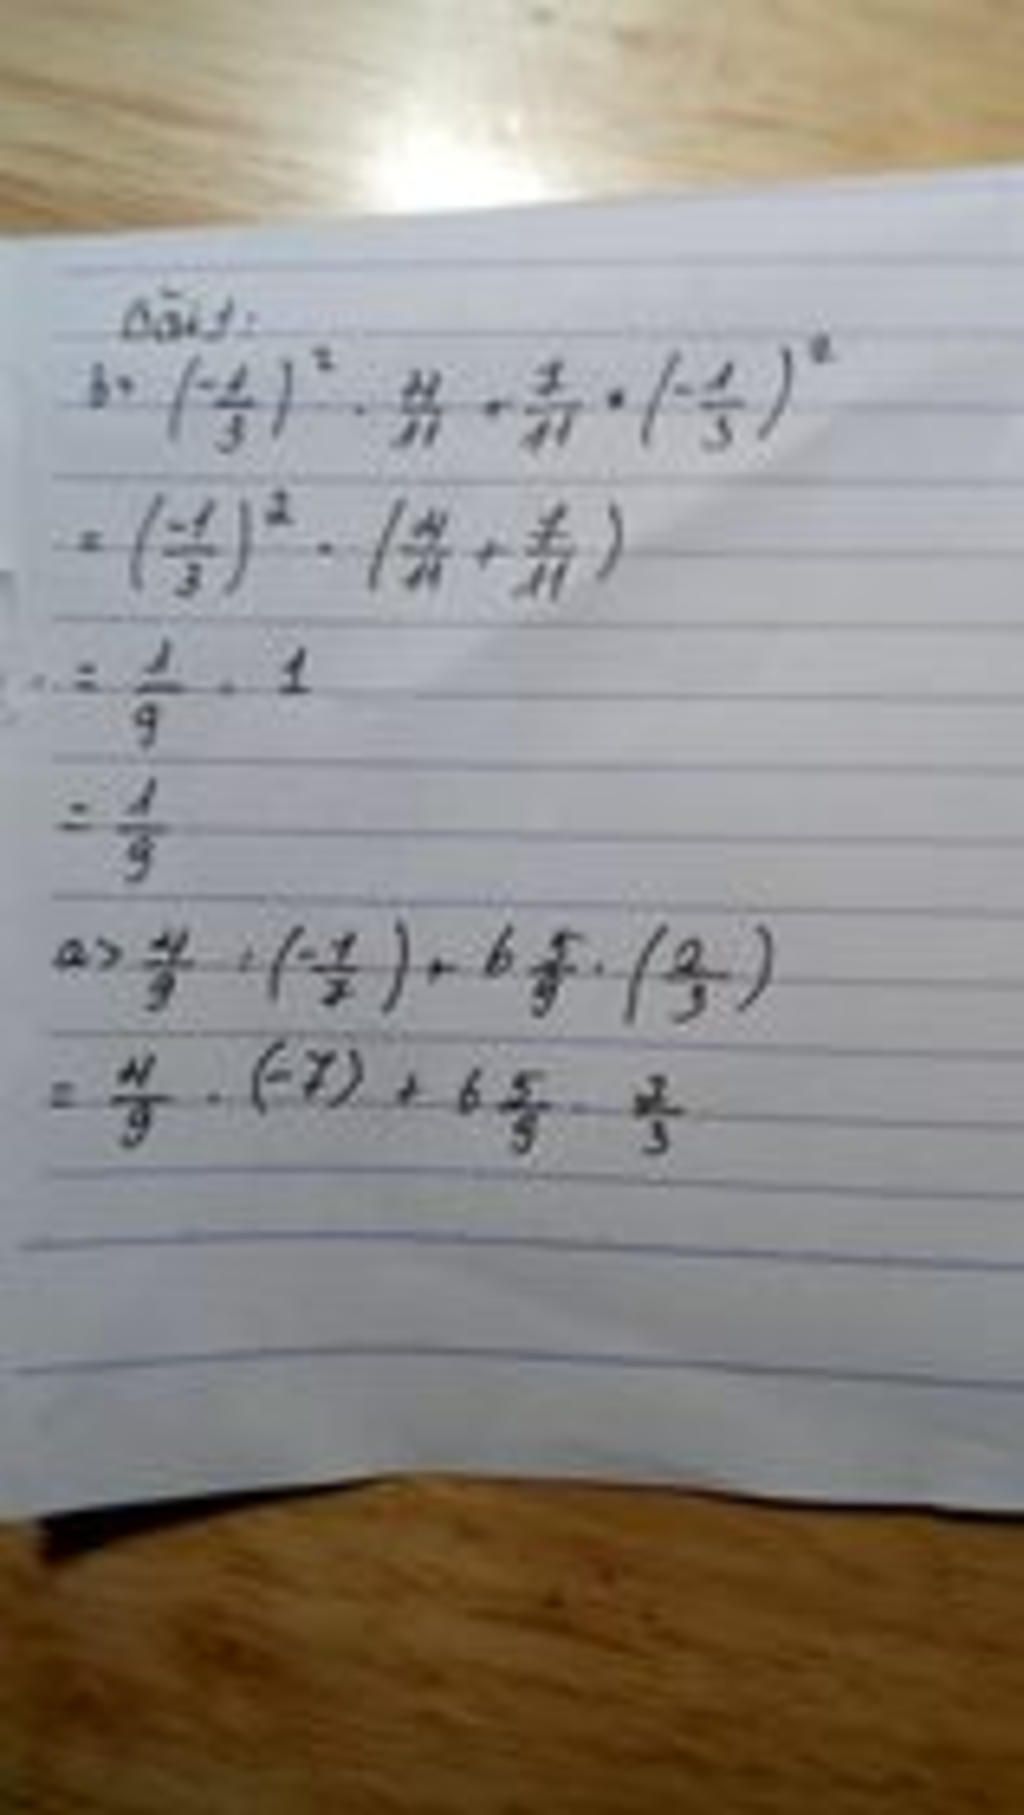 Bài 1:
b> (-1/3)² . 4/11 + 7/11 . (-1/3)²
= (-1/3)² . (4/11 + 7/11)
= 1/9 . 1
= 1/9
a> 4/9 : (-1/7) + 6 5/9 . (2/3)
= 4/9 . (-7) + 6 5/9 . 2/3